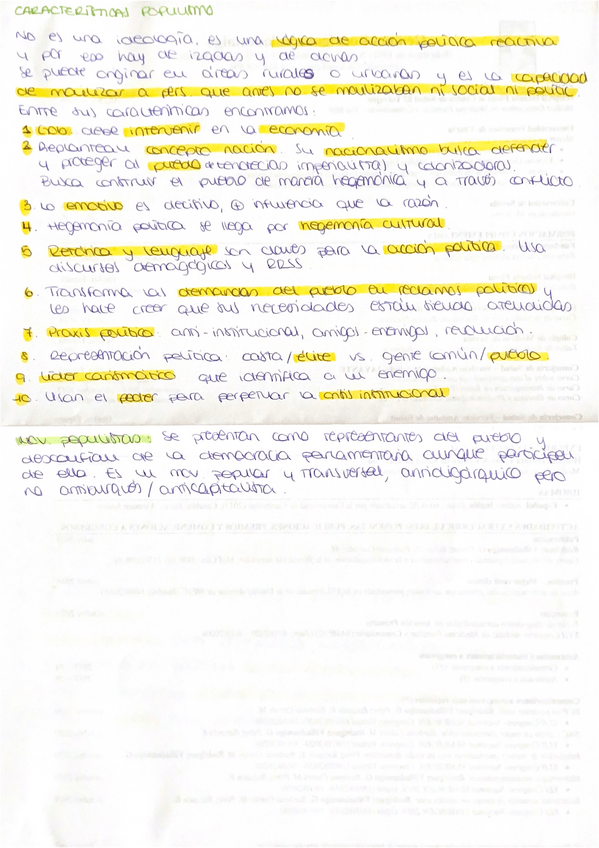 CARACTERÍSTICAS POPULISMO
No es una ideología, es una lógica de acción política reactiva
y por eso hay de izqdas y de dchas
Se puede originar en áreas rurales o urbanas y es la capacidad
de movilizar a pers. que antes no se movilizaban ni social ni polític.
Entre sus características encontramos:
1. debe intervenir en la economía.
2. Replantean concepto nación. Su nacionalismo busca defender
y proteger al pueblo de tendecias imperialistas y colonizadoras.
Busca construir el pueblo de manera hegemónica y a través conflicto
3. Lo emotivo es decisivo, ⊕ influencia que la razón.
4. Hegemonía política se llega por hegemonía cultural.
5. Retórica y lenguaje son claves para la acción política. Usa
discursos demagógicos y RRSS.
6. Transforma las demandas del pueblo en reclamos políticos y
les hace creer que sus necesidades están siendo atendidas
7. Praxis política: anti-institucional, amigos-enemigos, revolución.
8. Representación política: casta/élite vs. gente común/pueblo
9. Líder carismático que identifica a un enemigo.
10. Usan el poder para perpetuar la crisis institucional
Mov. populistas: se presentan como representantes del pueblo y
desconfían de la democracia parlamentaria aunque participen
de ella. Es un mov. popular y transversal, antioligárquico pero
no antiburgués/anticapitalista.